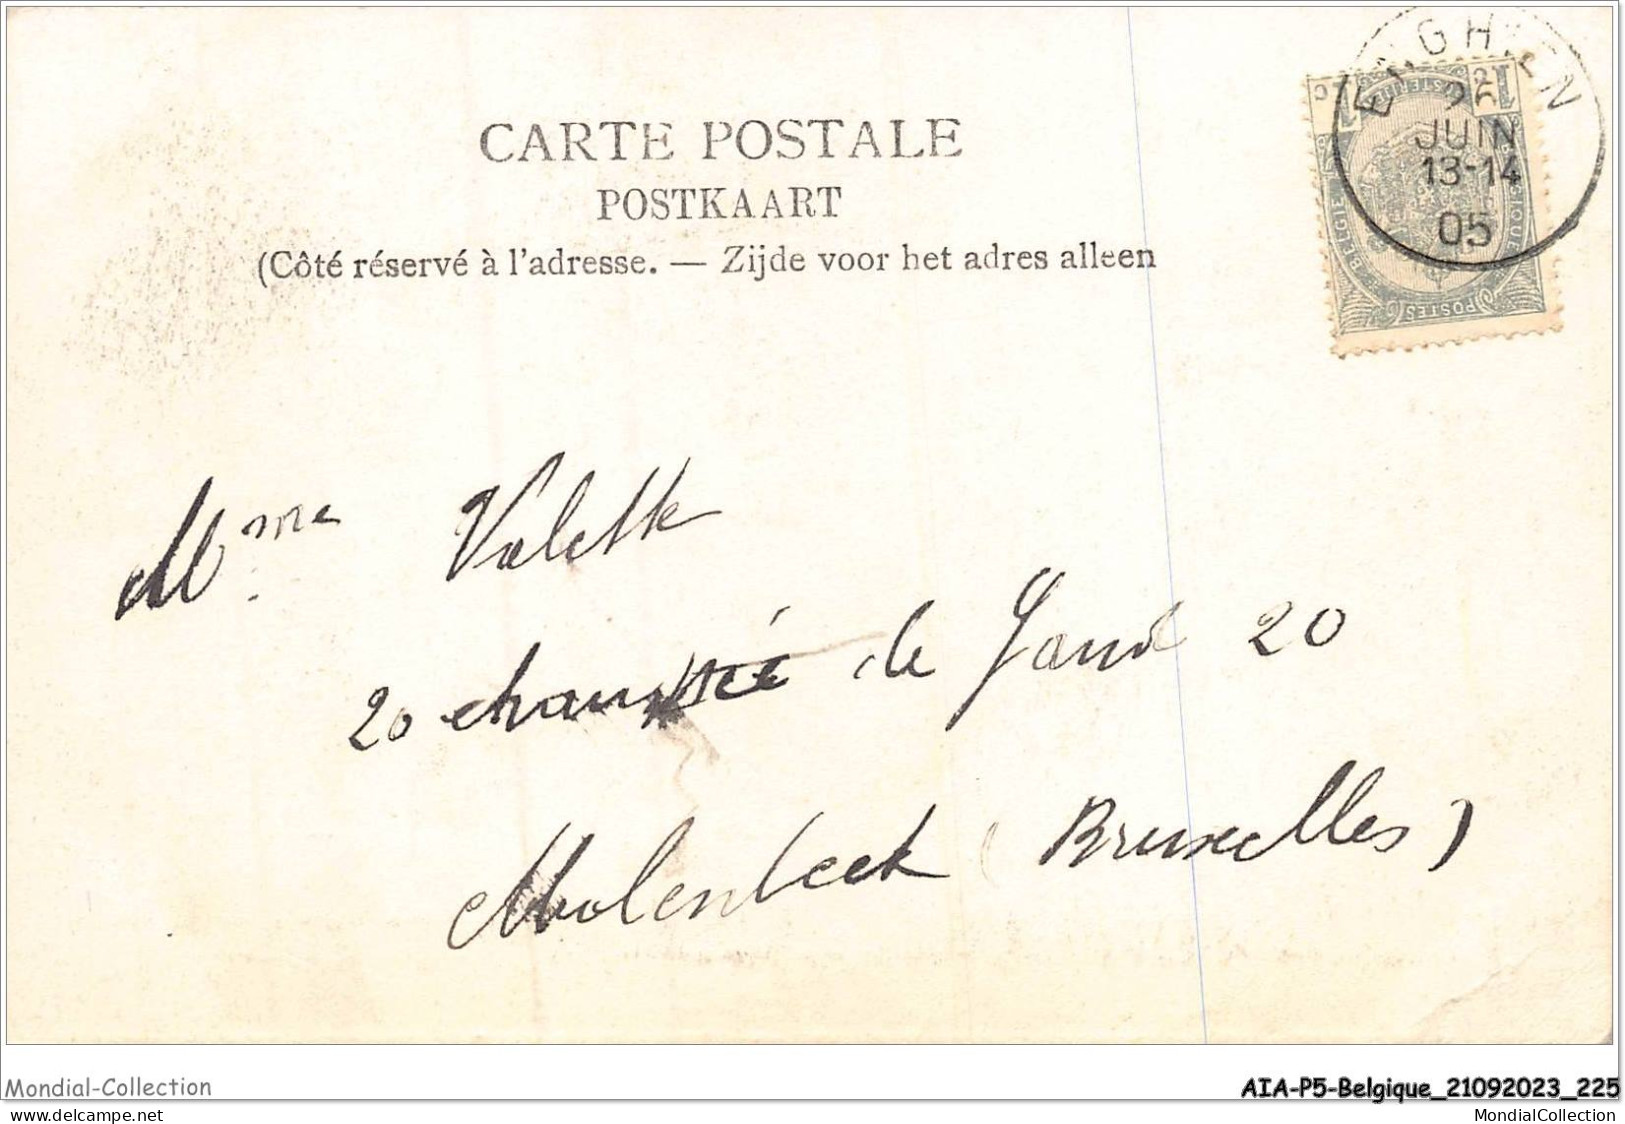 CARTE POSTALE
POSTKAART
(Côté réservé à l'adresse. — Zijde voor het adres alleen
ENGHIEN
26
JUIN
13-14
05
POSTES
Mme Valette
20 chaussée de Gand 20
Molenbeek (Bruxelles)
Mondial-Collection
AIA-P5-Belgique_21092023_225
www.delcampe.net
MondialCollection